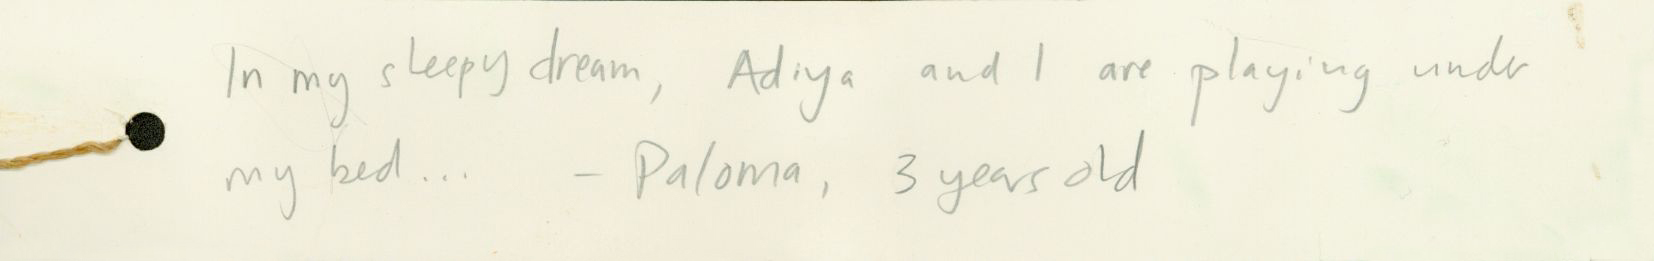 In my sleepy dream, Adiya and I are playing under
my bed... - Paloma, 3 years old